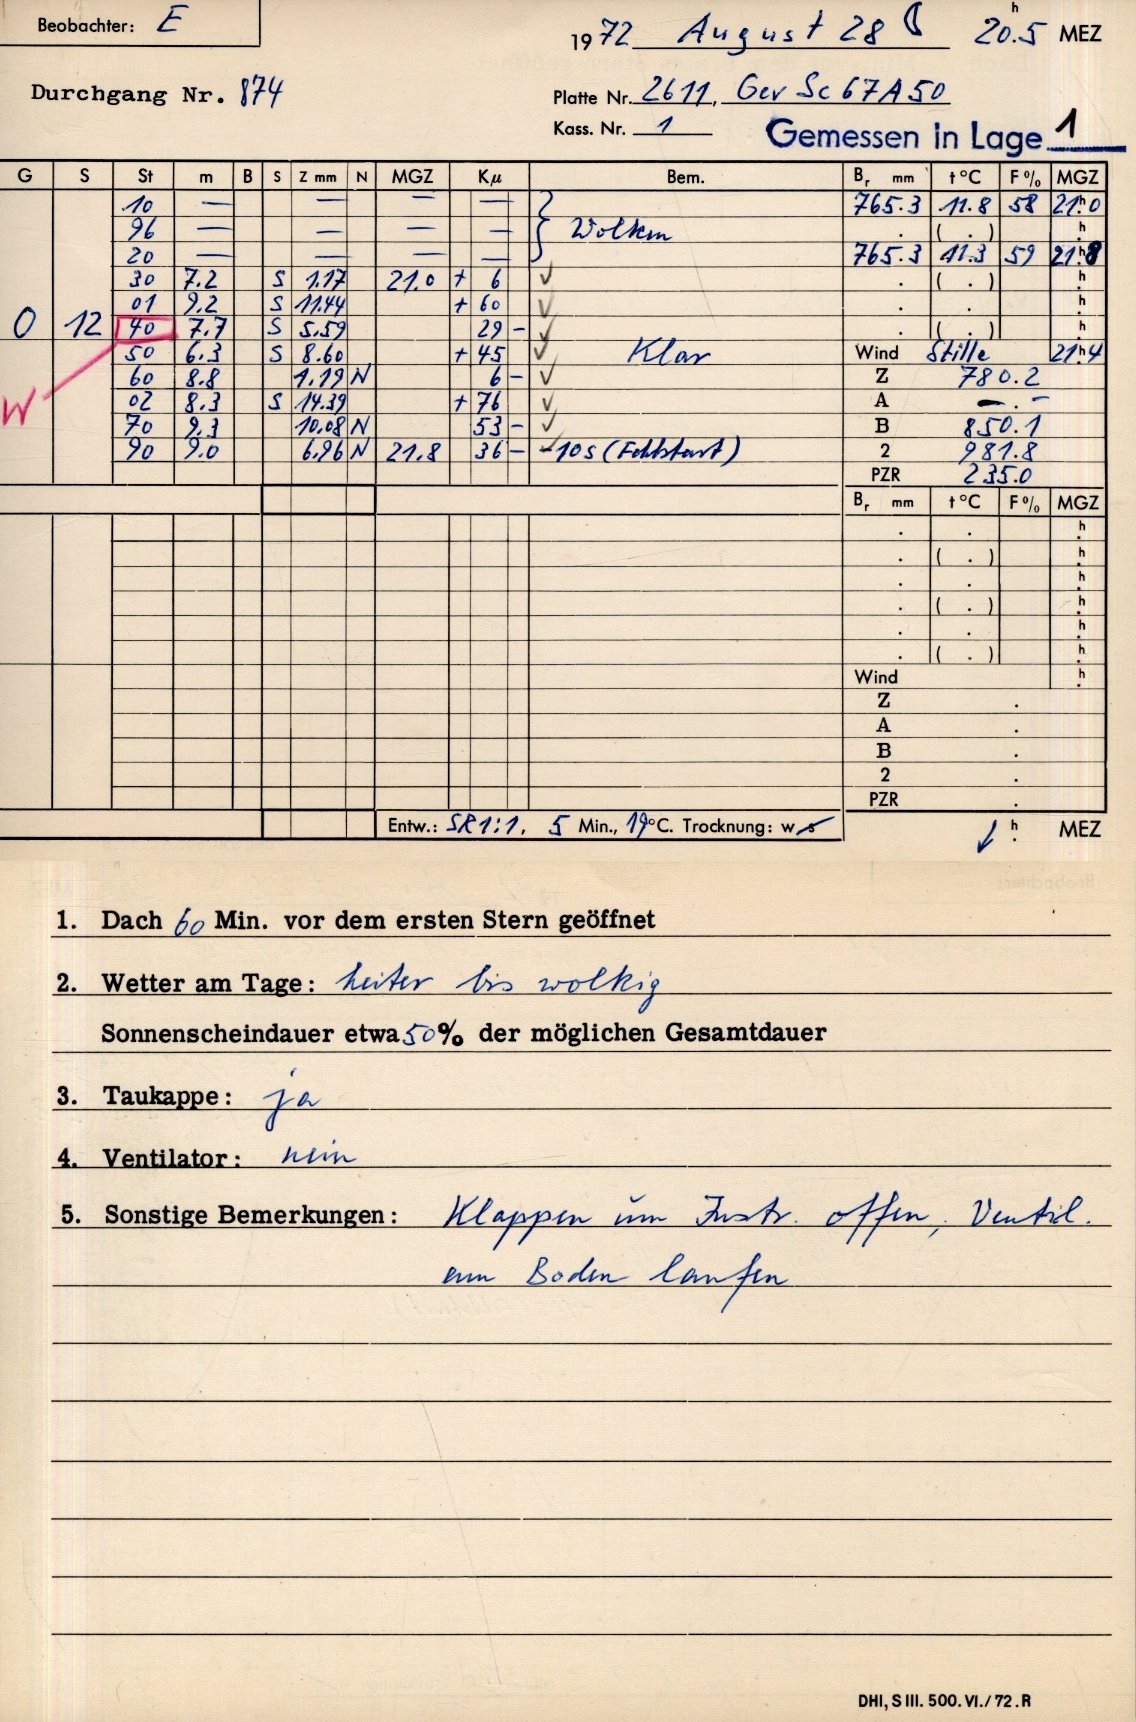 Beobachter: E
1972 August 28 20.5 h MEZ
Durchgang Nr. 874
Platte Nr. 2611, Gev Sc 67A50
Kass. Nr. 1
Gemessen in Lage 1
G S St m B S Z mm N MGZ Kμ Bem. Br mm t °C F % MGZ
10 — — — — 765.3 11.8 58 21h.0
96 — — — — Wolken . ( . ) h.
20 — — — — 765.3 11.3 59 21h.8
30 7.2 S 1.17 21.0 + 6 ✓ . ( . ) h.
01 9.2 S 11.44 + 60 ✓ . . h.
0 12 40 7.7 S 5.59 29 - ✓ . ( . ) h.
50 6.3 S 8.60 + 45 ✓ Klar Wind Stille 21h.4
60 8.8 1.19 N 6 - ✓ Z 780.2
W 02 8.3 S 14.39 + 76 ✓ A — . -
70 9.3 10.08 N 53 - ✓ B 850.1
90 9.0 6.96 N 21.8 36 - -10s (Fehlstart) 2 981.8
PZR 235.0
Br mm t °C F % MGZ
. . h.
. ( . ) h.
. . h.
. ( . ) h.
. . h.
. ( . ) h.
Wind h.
Z .
A .
B .
2 .
PZR .
Entw.: SR 1:1, 5 Min., 19°C. Trocknung: w s
h. MEZ
1. Dach 60 Min. vor dem ersten Stern geöffnet
2. Wetter am Tage: heiter bis wolkig
Sonnenscheindauer etwa 50% der möglichen Gesamtdauer
3. Taukappe: ja
4. Ventilator: nein
5. Sonstige Bemerkungen: Klappen um Instr. offen, Ventil.
am Boden laufen
DHI, S III. 500. VI./72. R